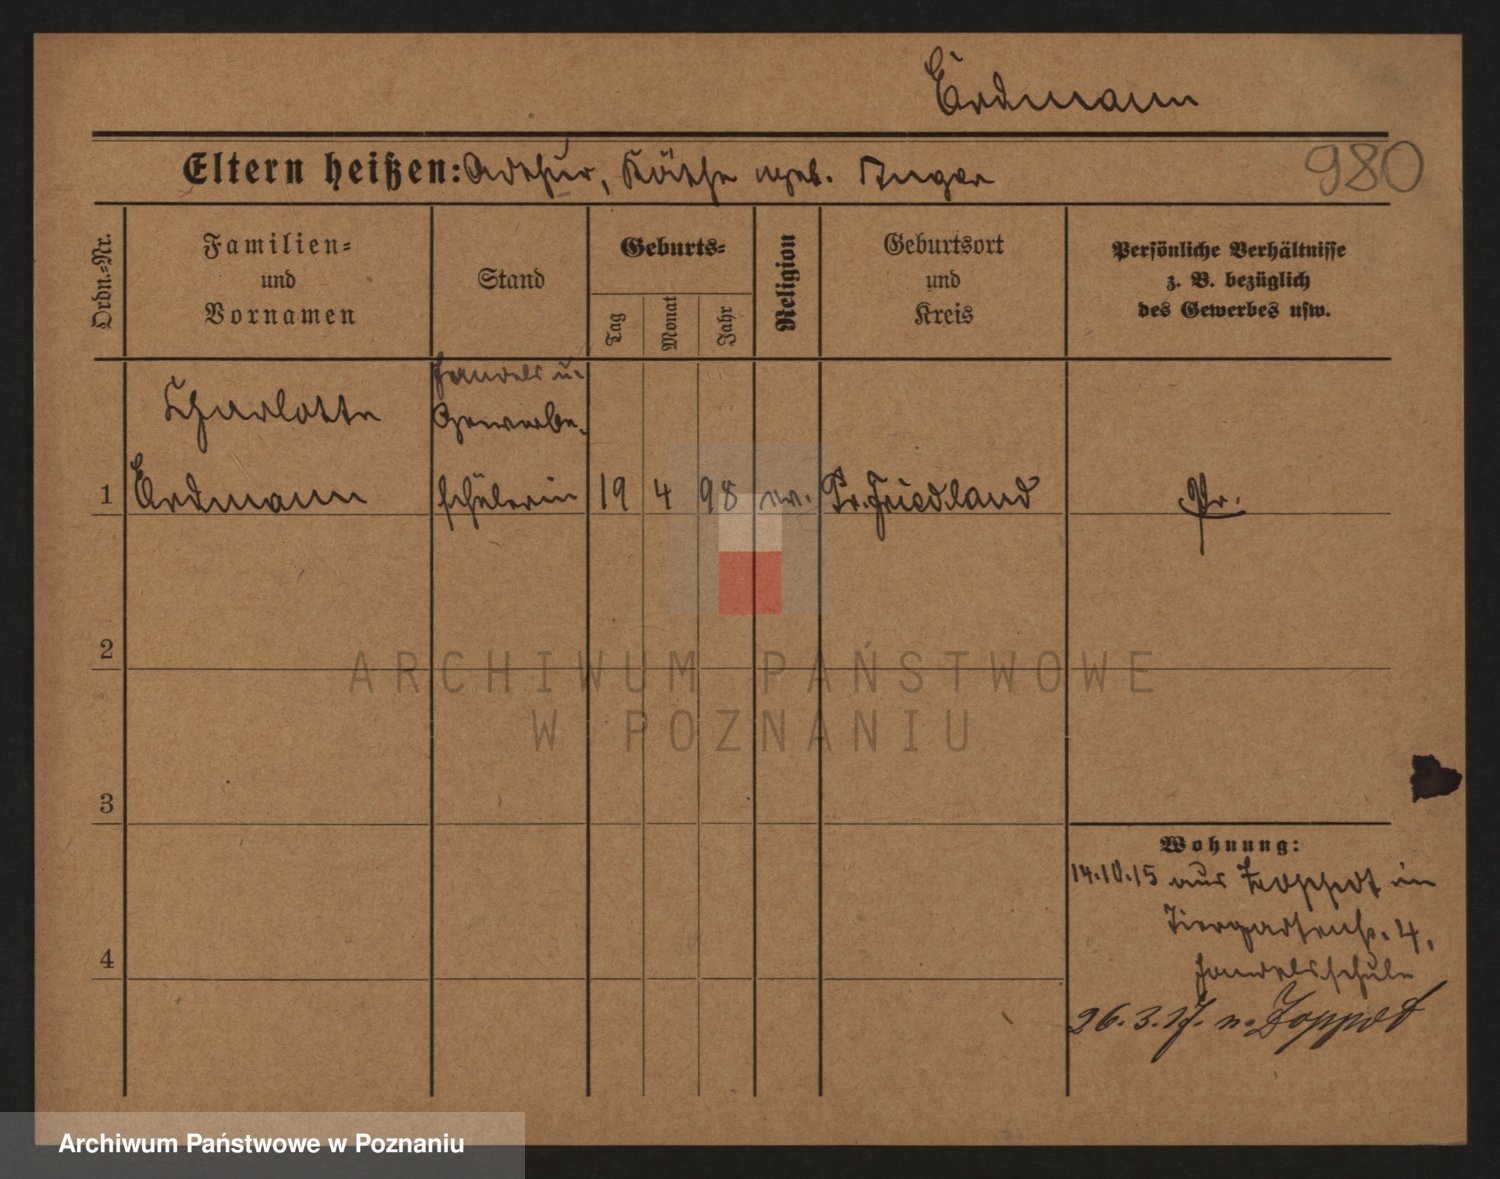 Erdmann
Eltern heißen: Arthur, Käthe geb. Unger
980
Ordn.-Nr.
Familien-
und
Vornamen
Stand
Geburts-
Tag
Monat
Jahr
Religion
Geburtsort
und
Kreis
Persönliche Verhältnisse
z. B. bezüglich
des Gewerbes usw.
Handels u.
Charlotte
Gewerbe-
1 Erdmann schülerin 19 4 98 ev. Pr. Friedland Pr.
2
ARCHIWUM PAŃSTWOWE
W POZNANIU
3
Wohnung:
14.10.15 aus Zoppot in
Tiergartenstr. 4,
4
Handelsschule
26.3.17. n. Zoppot
Archiwum Państwowe w Poznaniu